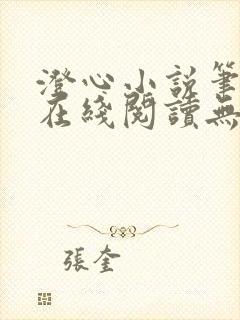 澄心小説筆
在綫閱讀無
張奎